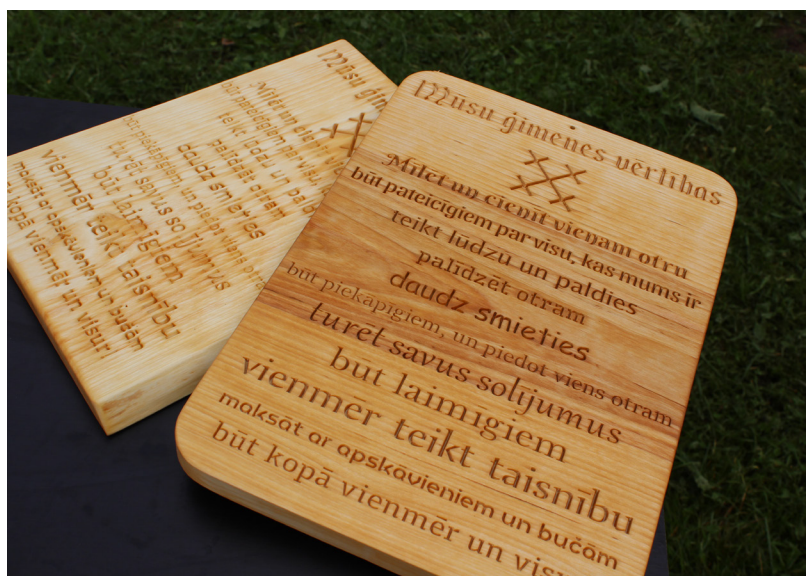 Mūsu ģimenes vērtības
Mīlēt un cienīt vienam otru
būt pateicīgiem par visu, kas mums ir
teikt lūdzu un paldies
palīdzēt otram
daudz smieties
būt piekāpīgiem, un piedot viens otram
turēt savus solījumus
būt laimīgiem
vienmēr teikt taisnību
maksāt ar apskāvieniem un bučām
būt kopā vienmēr un visur
Mūsu ģime
Mīlēt un cienīt
būt pateicīgiem par visu
teikt lūdzu un pa
palīdzēt otram
daudz smieties
būt piekāpīgiem, un piedot viens otra
turēt savus solījumus
būt laimīgiem
vienmēr teikt taisnību
maksāt ar apskāvieniem un bučām
kopā vienmēr un visur